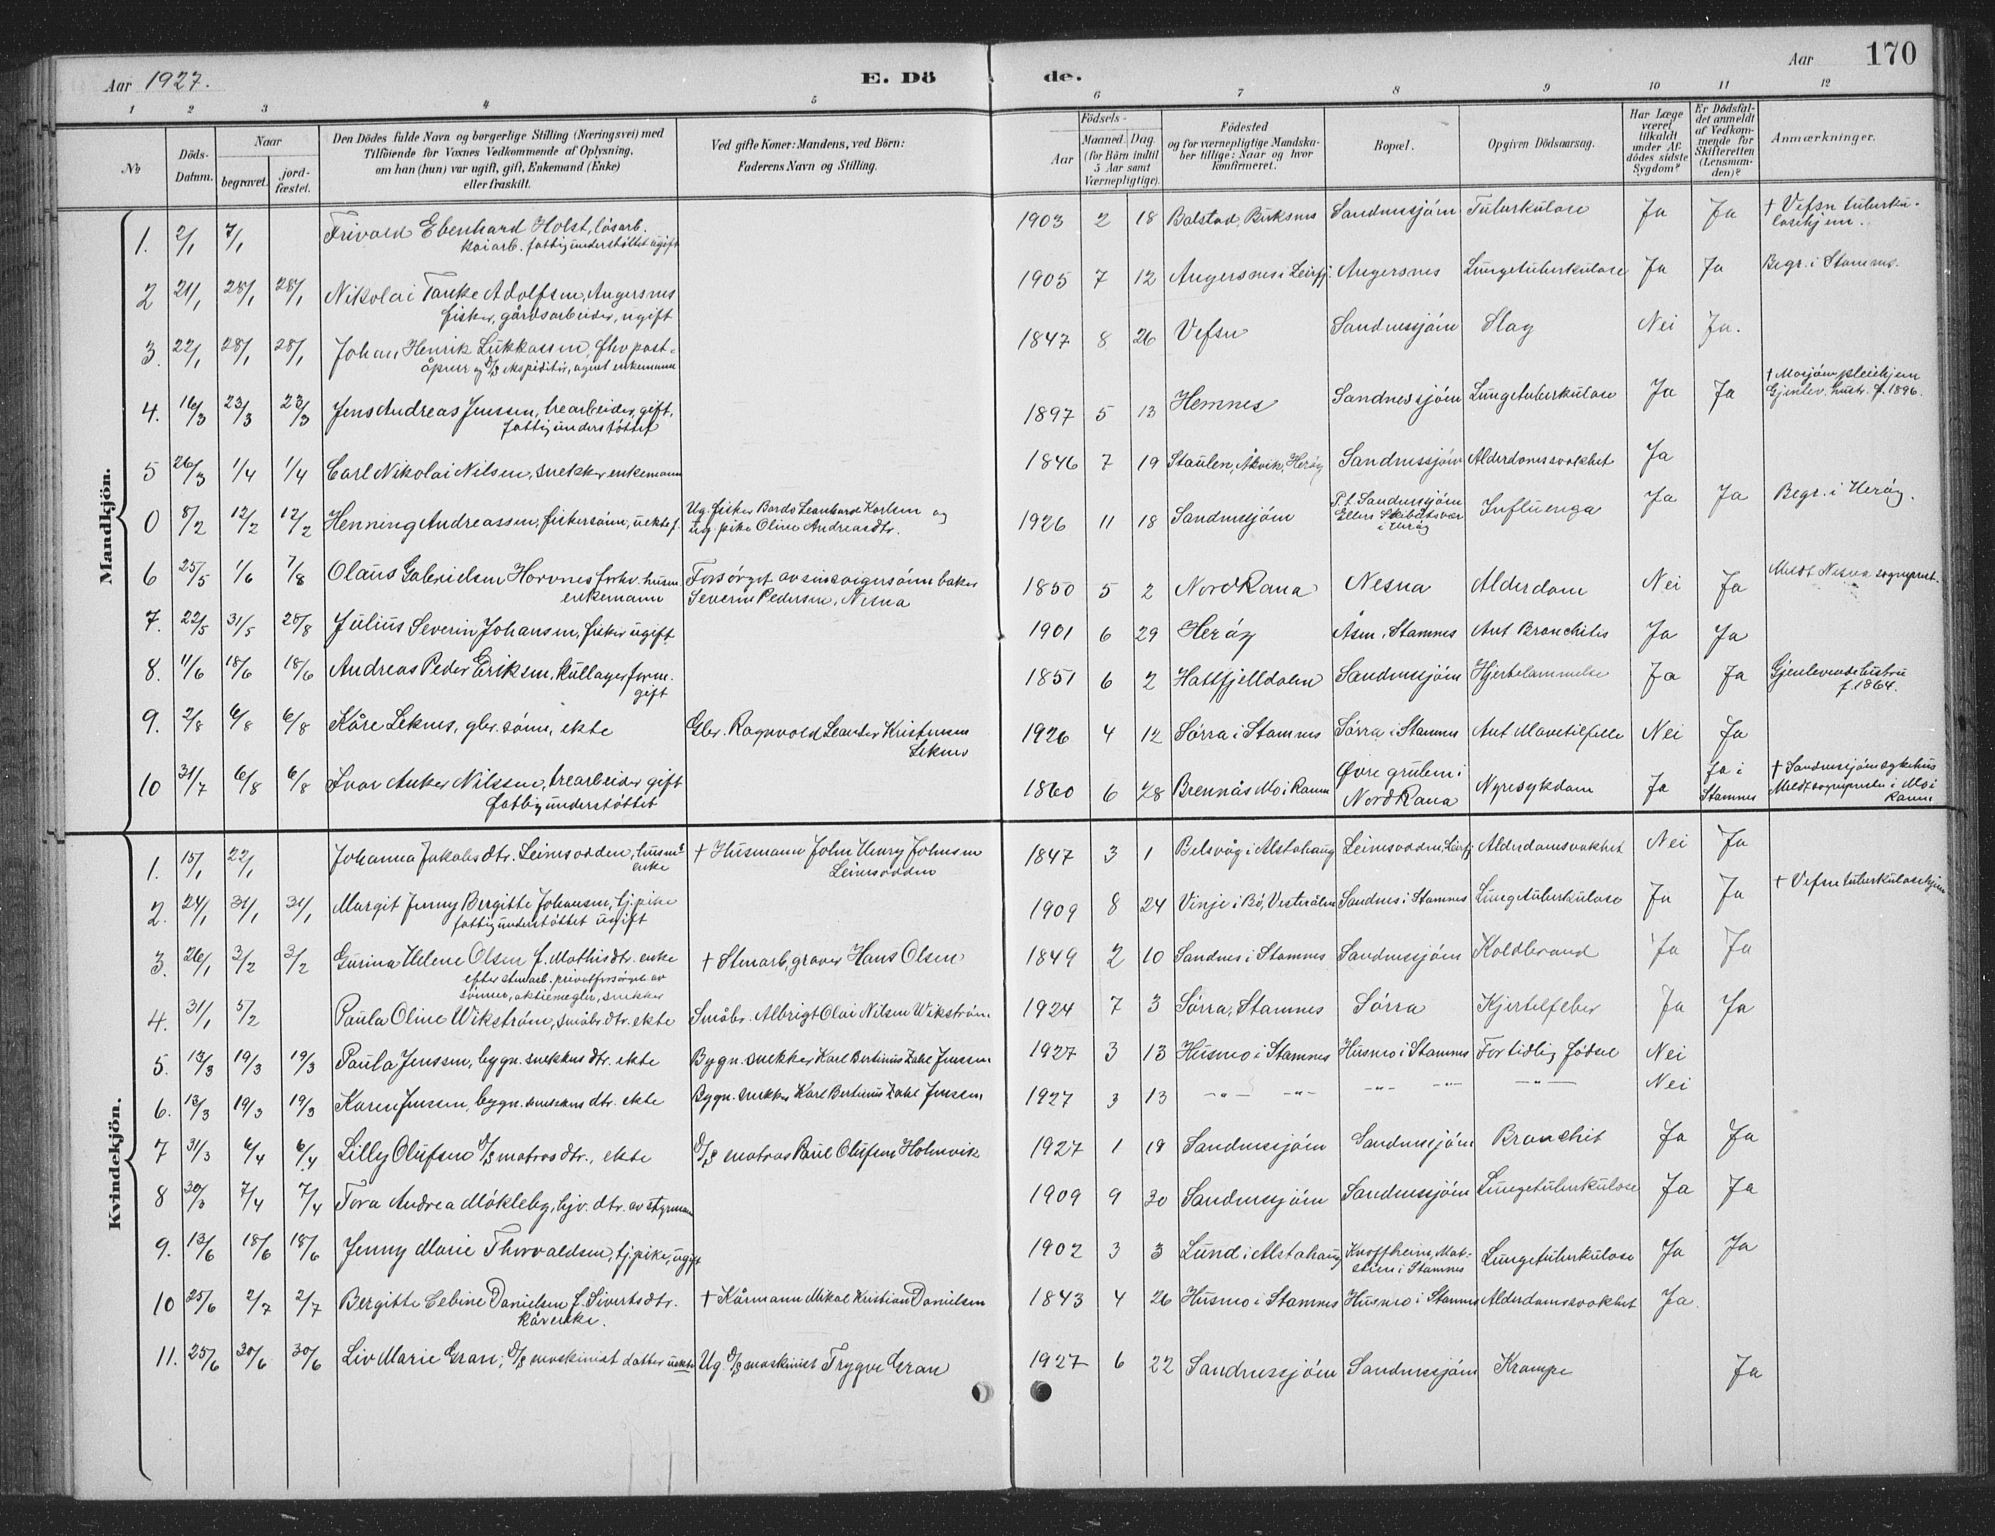 Aar 1927.
E. Dö
de.
Aar
170
1 2 3 4 5 6 7 8 9 10 11 12
No
Döds-Datum.
Naar
begravet.
jord-fæstet.
Den Dödes fulde Navn og borgerlige Stilling (Næringsvei) med
Tilföiende för Voxnes Vedkommende af Oplysning,
om han (hun) var ugift, gift, Enkemand (Enke)
eller fraskilt.
Ved gifte Koner: Mandens, ved Börn:
Faderens Navn og Stilling.
Födsels-
Aar
Maaned. Dag.
(for Börn indtil
5 Aar samt
Værnepligtige).
Födested
og for værnepligtige Mandska-
ber tillige: Naar og hvor
konfirmeret.
Bopæl.
Opgiven Dödsaarsag.
Har Læge
været
tilkaldt
under Af-
dödes sidste
Sygdom?
Er Dödsfal-
det anmeldt
af Vedkom-
mende for
Skifteretten
(Lensman-
den)?
Anmærkninger.
Mandkjön.
1. 2/1 7/1 Frivald Ebenhard Holst, lösarb. 1903 2 18 Balstad, Buksnes Sandnessjöen Tuberkulose Ja Ja † Vefsn tuberku-
kaiarb. fattigunderstöttet ugift losehjem.
2 21/1 28/1 28/1 Nikolai Tanke Adolfsen, Angersnes 1905 7 12 Angersnes i Leirfj. Angersnes Lungetuberkulose Ja Ja Begr. i Stamnes.
fisker, gårdsarbeider, ugift
3. 22/1 28/1 28/1 Johan Henrik Lukkassen, fhv. post- 1847 8 26 Vefsn Sandnessjöen Slag Nei Ja.
åpner og D/S ekspeditör, agent enkemann
4. 16/3 23/3 23/3 Jens Andreas Jenssen, trearbeider, gift, 1897 5 13 Hemnes Sandnessjöen Lungetuberkulose Ja Ja † Mosjöen pleiehjem
fattigunderstöttet Gjenlev. hustr. f. 1896.
5 26/3 1/4 1/4 Carl Nikolai Nilsen, snekker enkemann 1846 7 19 Staulen, Åkvik, Heröy Sandnessjöen Alderdomssvakhet Ja
0 8/2 12/2 12/2 Henning Andreassen, fiskersönn, uekte f. Ug. fisker Bardo Leonhard Karlsen og
ug. pike Oline Andreasdtr. 1926 11 18 Sandnessjöen P.t. Sandnessjöen
Ellers Skibåtsvær
i Heröy Influenza Ja Ja Begr. i Heröy.
6 25/5 1/6 7/8 Olaus Gabrielsen Horvnes forhv. husm. Forsörget av sin svigersönn baker 1850 5 2 Nord Rana Nesna Alderdom Nei Ja Meldt Nesna sogneprest.
enkemann Severin Pedersen, Nesna
7. 22/5 31/5 28/8 Julius Severin Johansen, fisker ugift 1901 6 29 Heröy Åsen i Stamnes Aut Bronchitis Ja Ja
8. 11/6 18/6 18/6 Andreas Peder Eriksen, kullagerform. 1851 6 2 Hatfjelldalen Sandnessjöen Hjertelammelse Ja Ja Gjenlevende hustru
gift f. 1864.
9. 2/8 6/8 6/8 Kåre Leknes, gbr. sönn, ekte Gbr. Ragnvald Leander Kristensen 1926 4 12 Sörra i Stamnes Sörra i Stamnes Aut Mavetilfelle Nei Ja
Leknes
10 31/7 6/8 6/8 Ivar Anker Nilssen, trearbeider gift 1860 6 28 Brennås Mo i Rana Övre gruben i
Nord Rana Nyresykdom Ja Ja i
Stamnes † Sandnessjöen sykehus
fattigunderstöttet Meldt sogneprest i Mo i
Rana
Kvindekjön.
1. 15/1 22/1 Johanna Jakobsdtr. Leinesodden, husm. † Husmann John Henry Johnsen 1847 3 1 Belsvåg i Alstahaug Leinesodden, Leirfj. Alderdomssvakhet Nei Ja
enke Leinesodden
2. 24/1 31/1 31/1 Margit Jenny Bergitte Johansen, tj. pike 1909 8 24 Vinje i Bö, Vesterålen Sandnes i Stamnes Lungetuberkulose Ja Ja † Vefsn tuberkulosehjem
fattigunderstöttet ugift
3. 26/1 3/2 3/2 Gurina Helene Olsen f. Mathisdtr. enke † Stenarb. graver Hans Olsen 1849 2 10 Sandnes i Stamnes Sandnessjöen Koldbrand Ja Ja
efter stenarb. privatforsörget av
sönner, aktiemegler, snekker
4. 31/1 5/2 Paula Oline Wikström, småbr. dtr. ekte Småbr. Albrigt Olai Nilsen Wikström 1924 7 3 Sörra, Stamnes Sörra Kjertelfeber Ja Ja
5. 13/3 19/3 19/3 Paula Jenssen, bygn. snekkers dtr. ekte Bygn. snekker Karl Bertinus Zahl Jensen 1927 3 13 Husmo i Stamnes Husmo i Stamnes For tidlig födsel Nei
6. 13/3 19/3 19/3 Karen Jensen, bygn. snekkers dtr. ekte Bygn. snekker Karl Bertinus Zahl Jensen 1927 3 13 -"- -"- -"- -"- -"- Nei
7 31/3 6/4 6/4 Lilly Olufsen D/S matros dtr., ekte D/S matros Paul Olufsen Holmvik 1927 1 19 Sandnessjöen Sandnessjöen Bronchit Ja Ja
8 30/3 7/4 7/4 Tora Andrea Mökleby, hjv. dtr. av styrmann 1909 9 30 Sandnessjöen Sandnessjöen Lungetuberkulose Ja Ja
9. 13/6 18/6 18/6 Jenny Marie Thorvaldsen, tj. pike, ugift 1902 3 3 Lund i Alstahaug Knoffheim, Mat-
stien i Stamnes Lungetuberkulose Ja Ja
10 25/6 2/7 2/7 Bergitte Cebine Danielsen f. Sivertsdtr. † Kårmann Mikal Kristian Danielsen 1843 4 26 Husmo i Stamnes Husmo i Stamnes Alderdomssvakhet Ja.
kårenke.
11. 25/6 30/6 30/6 Liv Marie Gran, D/S maskinist datter uekte Ug. D/S maskinist Trygve Gran 1927 6 22 Sandnessjöen Sandnessjöen Krampe Ja